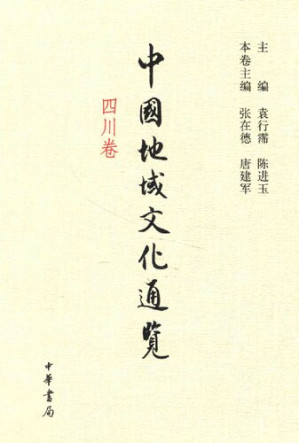 主 编 袁行霈 陈进玉
本卷主编 张在德 唐建军
中國地域文化通覽
四川卷
中華書局